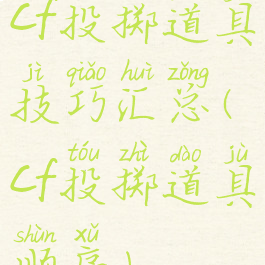 cf投掷道具
jì qiǎo huì zǒng
技巧汇总(
tóu zhì dào jù
cf投掷道具
shùn xǔ
顺序)